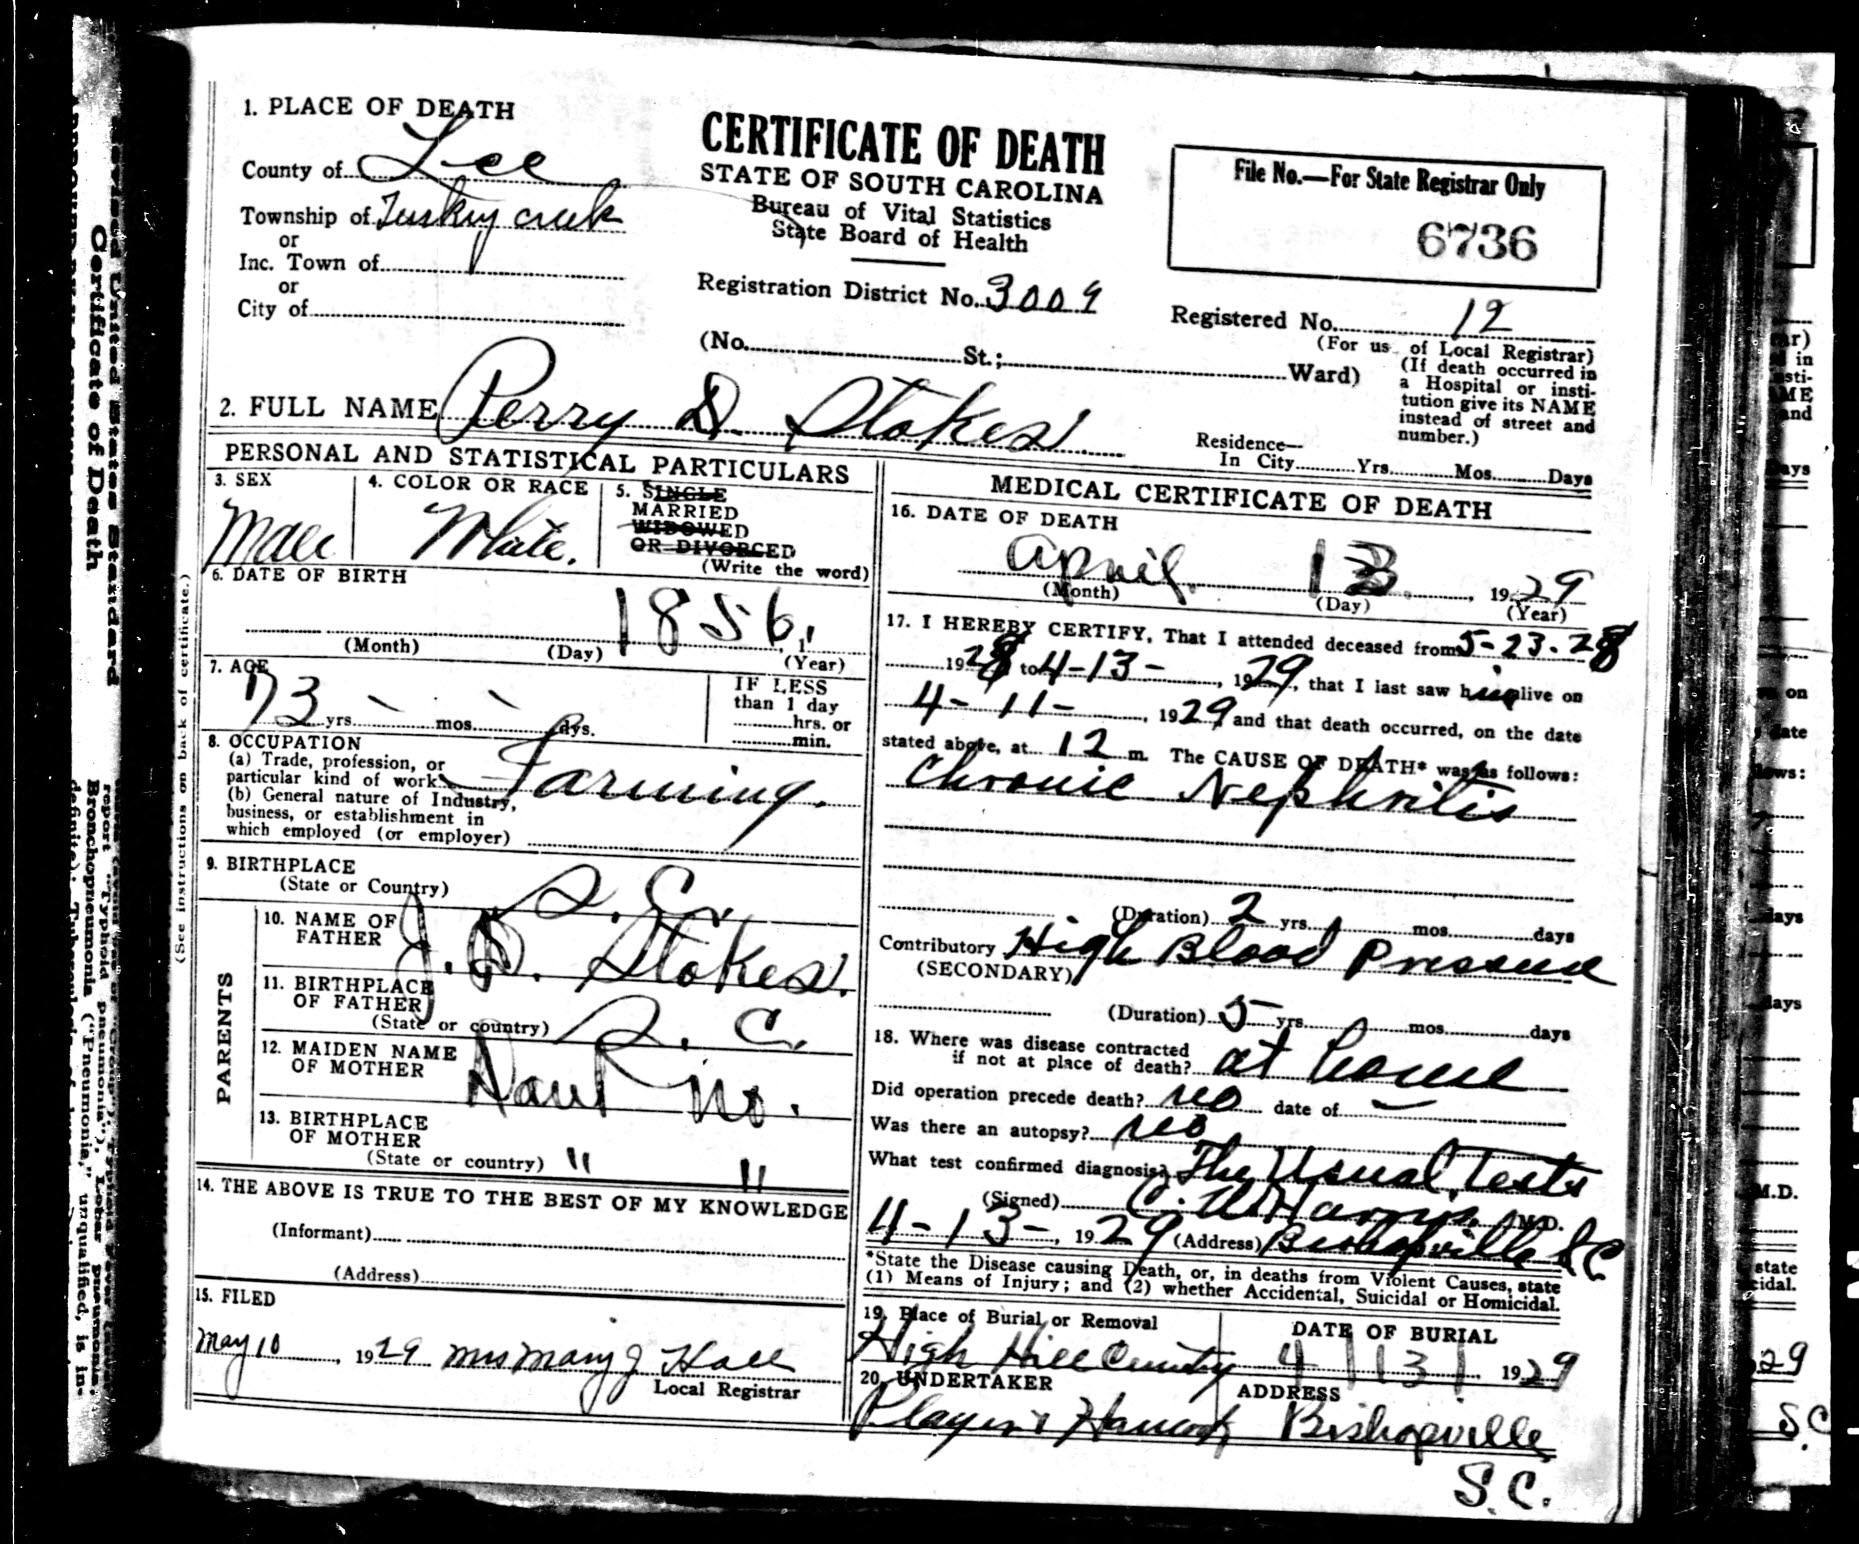 1. PLACE OF DEATH
County of Lee
Township of Turkey creek
or
Inc. Town of
or
City of
CERTIFICATE OF DEATH
STATE OF SOUTH CAROLINA
Bureau of Vital Statistics
State Board of Health
Registration District No. 3009
File No.—For State Registrar Only
6736
Registered No. 12
(For us of Local Registrar)
(No. St.; Ward)
(If death occurred in
a Hospital or insti-
tution give its NAME
instead of street and
number.)
2. FULL NAME Perry D Stokes
Residence—
In City Yrs. Mos. Days
PERSONAL AND STATISTICAL PARTICULARS
3. SEX
Male
4. COLOR OR RACE
White.
5. SINGLE
MARRIED
WIDOWED
OR DIVORCED
(Write the word)
6. DATE OF BIRTH
1856, 1
(Month) (Day) (Year)
7. AGE
73 yrs. mos. dys.
IF LESS
than 1 day
hrs. or
min.
8. OCCUPATION
(a) Trade, profession, or
particular kind of work Farming.
(b) General nature of Industry,
business, or establishment in
which employed (or employer)
9. BIRTHPLACE
(State or Country) S.C.
PARENTS
10. NAME OF
FATHER J. D. Stokes.
11. BIRTHPLACE
OF FATHER
(State or country) S. C.
12. MAIDEN NAME
OF MOTHER Dont no.
13. BIRTHPLACE
OF MOTHER
(State or country) " "
14. THE ABOVE IS TRUE TO THE BEST OF MY KNOWLEDGE
(Informant)
(Address)
15. FILED
May 10, 1929 Mrs Mary J Hall
Local Registrar
MEDICAL CERTIFICATE OF DEATH
16. DATE OF DEATH
April 13, 1929
(Month) (Day) (Year)
17. I HEREBY CERTIFY, That I attended deceased from 5-23-28
1928 to 4-13-, 1929, that I last saw him alive on
4-11-, 1929 and that death occurred, on the date
stated above, at 12 m. The CAUSE OF DEATH* was as follows:
Chronic Nephritis
(Duration) 2 yrs. mos. days
Contributory High Blood Pressure
(SECONDARY)
(Duration) 5 yrs. mos. days
18. Where was disease contracted
if not at place of death? at home
Did operation precede death? no date of —
Was there an autopsy? no
What test confirmed diagnosis? The Usual Tests
(Signed) C. W Harris, M.D.
4-13-, 1929 (Address) Bishopville S C
*State the Disease causing Death, or, in deaths from Violent Causes, state
(1) Means of Injury; and (2) whether Accidental, Suicidal or Homicidal.
19. Place of Burial or Removal
High Hill Cemetery
DATE OF BURIAL
4 | 13 | 1929
20. UNDERTAKER
Player &
ADDRESS
Bishopville
S.C.
(See instructions on back of certificate.)
Revised United States Standard
Certificate of Death